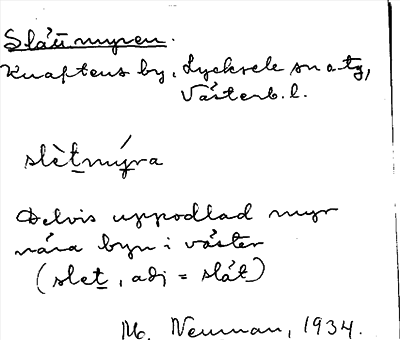 Slätmyren.
Knaftens by, Lycksele sn o. tg,
Västerb. l.
slètmýra
Delvis uppodlad myr
nära byn i väster
(slet, adj = slät)
M. Neuman, 1934.